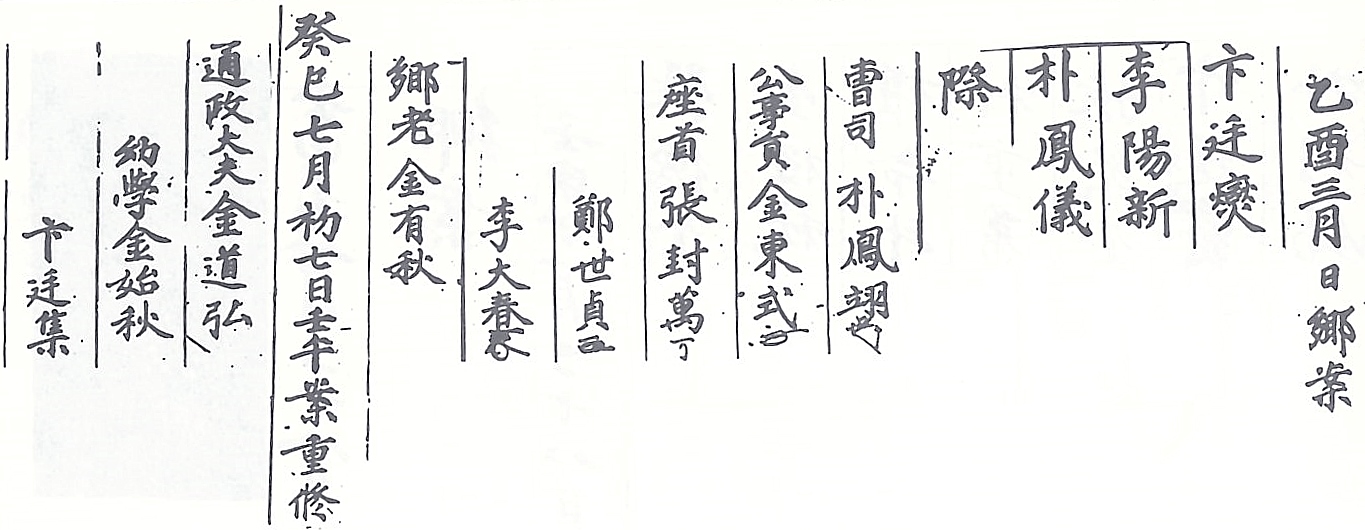 乙酉三月 日鄕案
卞廷爕
李陽新
朴鳳儀
際
曺司 朴鳳翊
公事員金東式
座首張封萬
鄭世貞
李大春
鄕老金有秋
癸巳七月初七日壬午案重修
通政大夫金道弘
幼學金始秋
卞廷集